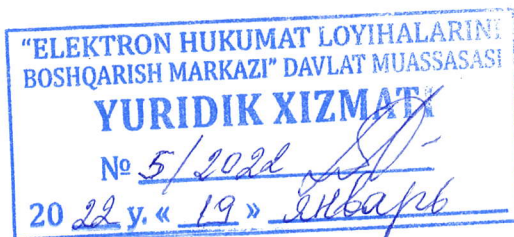 "ELEKTRON HUKUMAT LOYIHALARINI
BOSHQARISH MARKAZI" DAVLAT MUASSASASI
YURIDIK XIZMATI
№ 5/2022
20 22 y. « 19 » январь